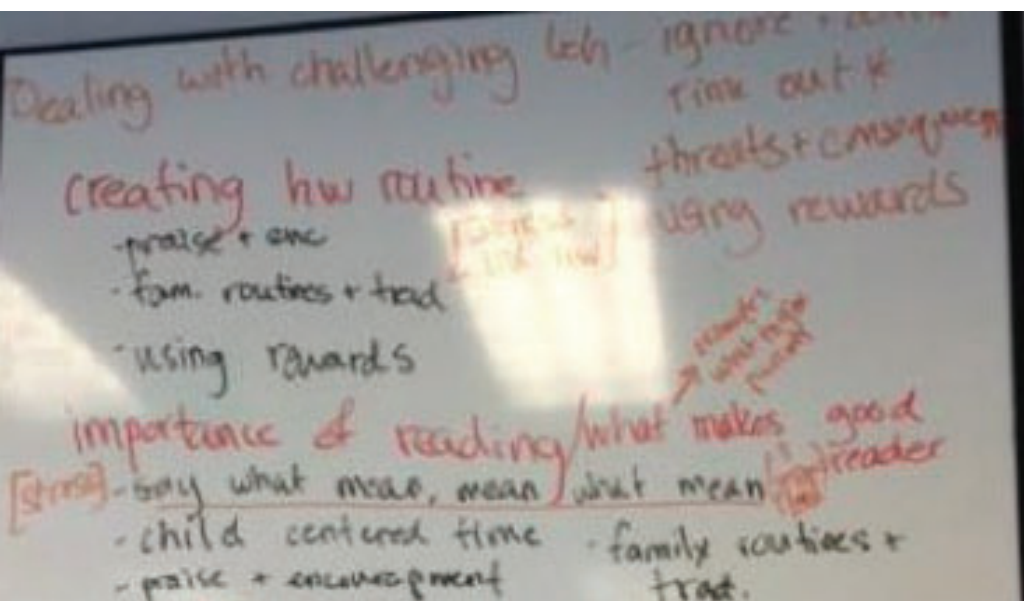 Dealing with challenging beh - ignore +
time out *
threats + consequen
using rewards
creating hw routine
- praise + enc
- fam. routines + trad
- using rewards
importance of reading/what makes good
reader
[stress] - say what mean, mean what mean
- child centered time
- family routines +
trad.
- praise + encouragement